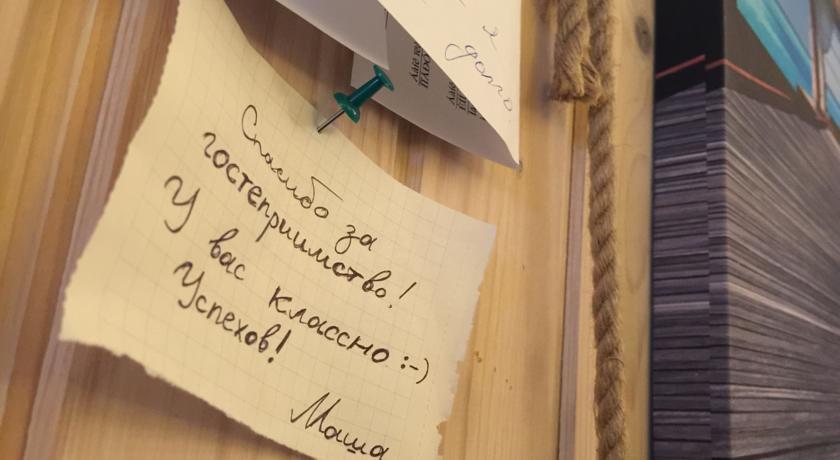 Спасибо за
гостеприимство!
У вас классно :-)
Успехов!
Маша